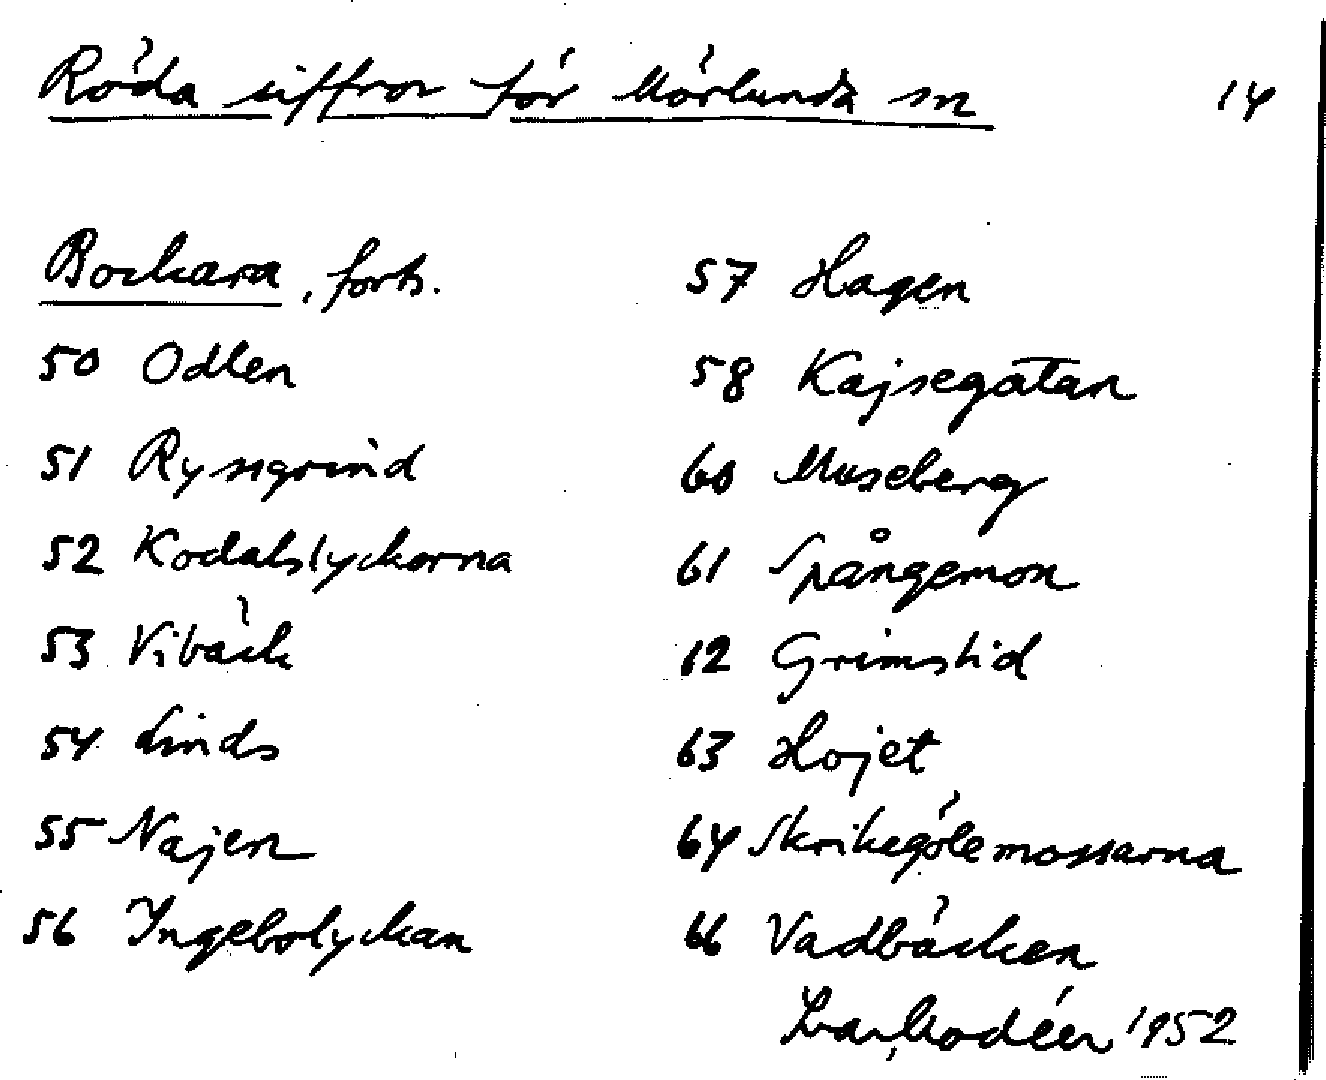 Röda siffror för Mörlunda sn 14
Bockara, forts.
50 Odlen
51 Ryssgrind
52 Kodalslyckorna
53 Vibäck
54 Linds
55 Najen
56 Ingebolyckan
57 Hagen
58 Kajsegatan
60 Museberg
61 Spångemon
12 Grimstid
63 Hojet
64 Skrikegölemossarna
66 Vadbäcken
Ivar Modéer 1952